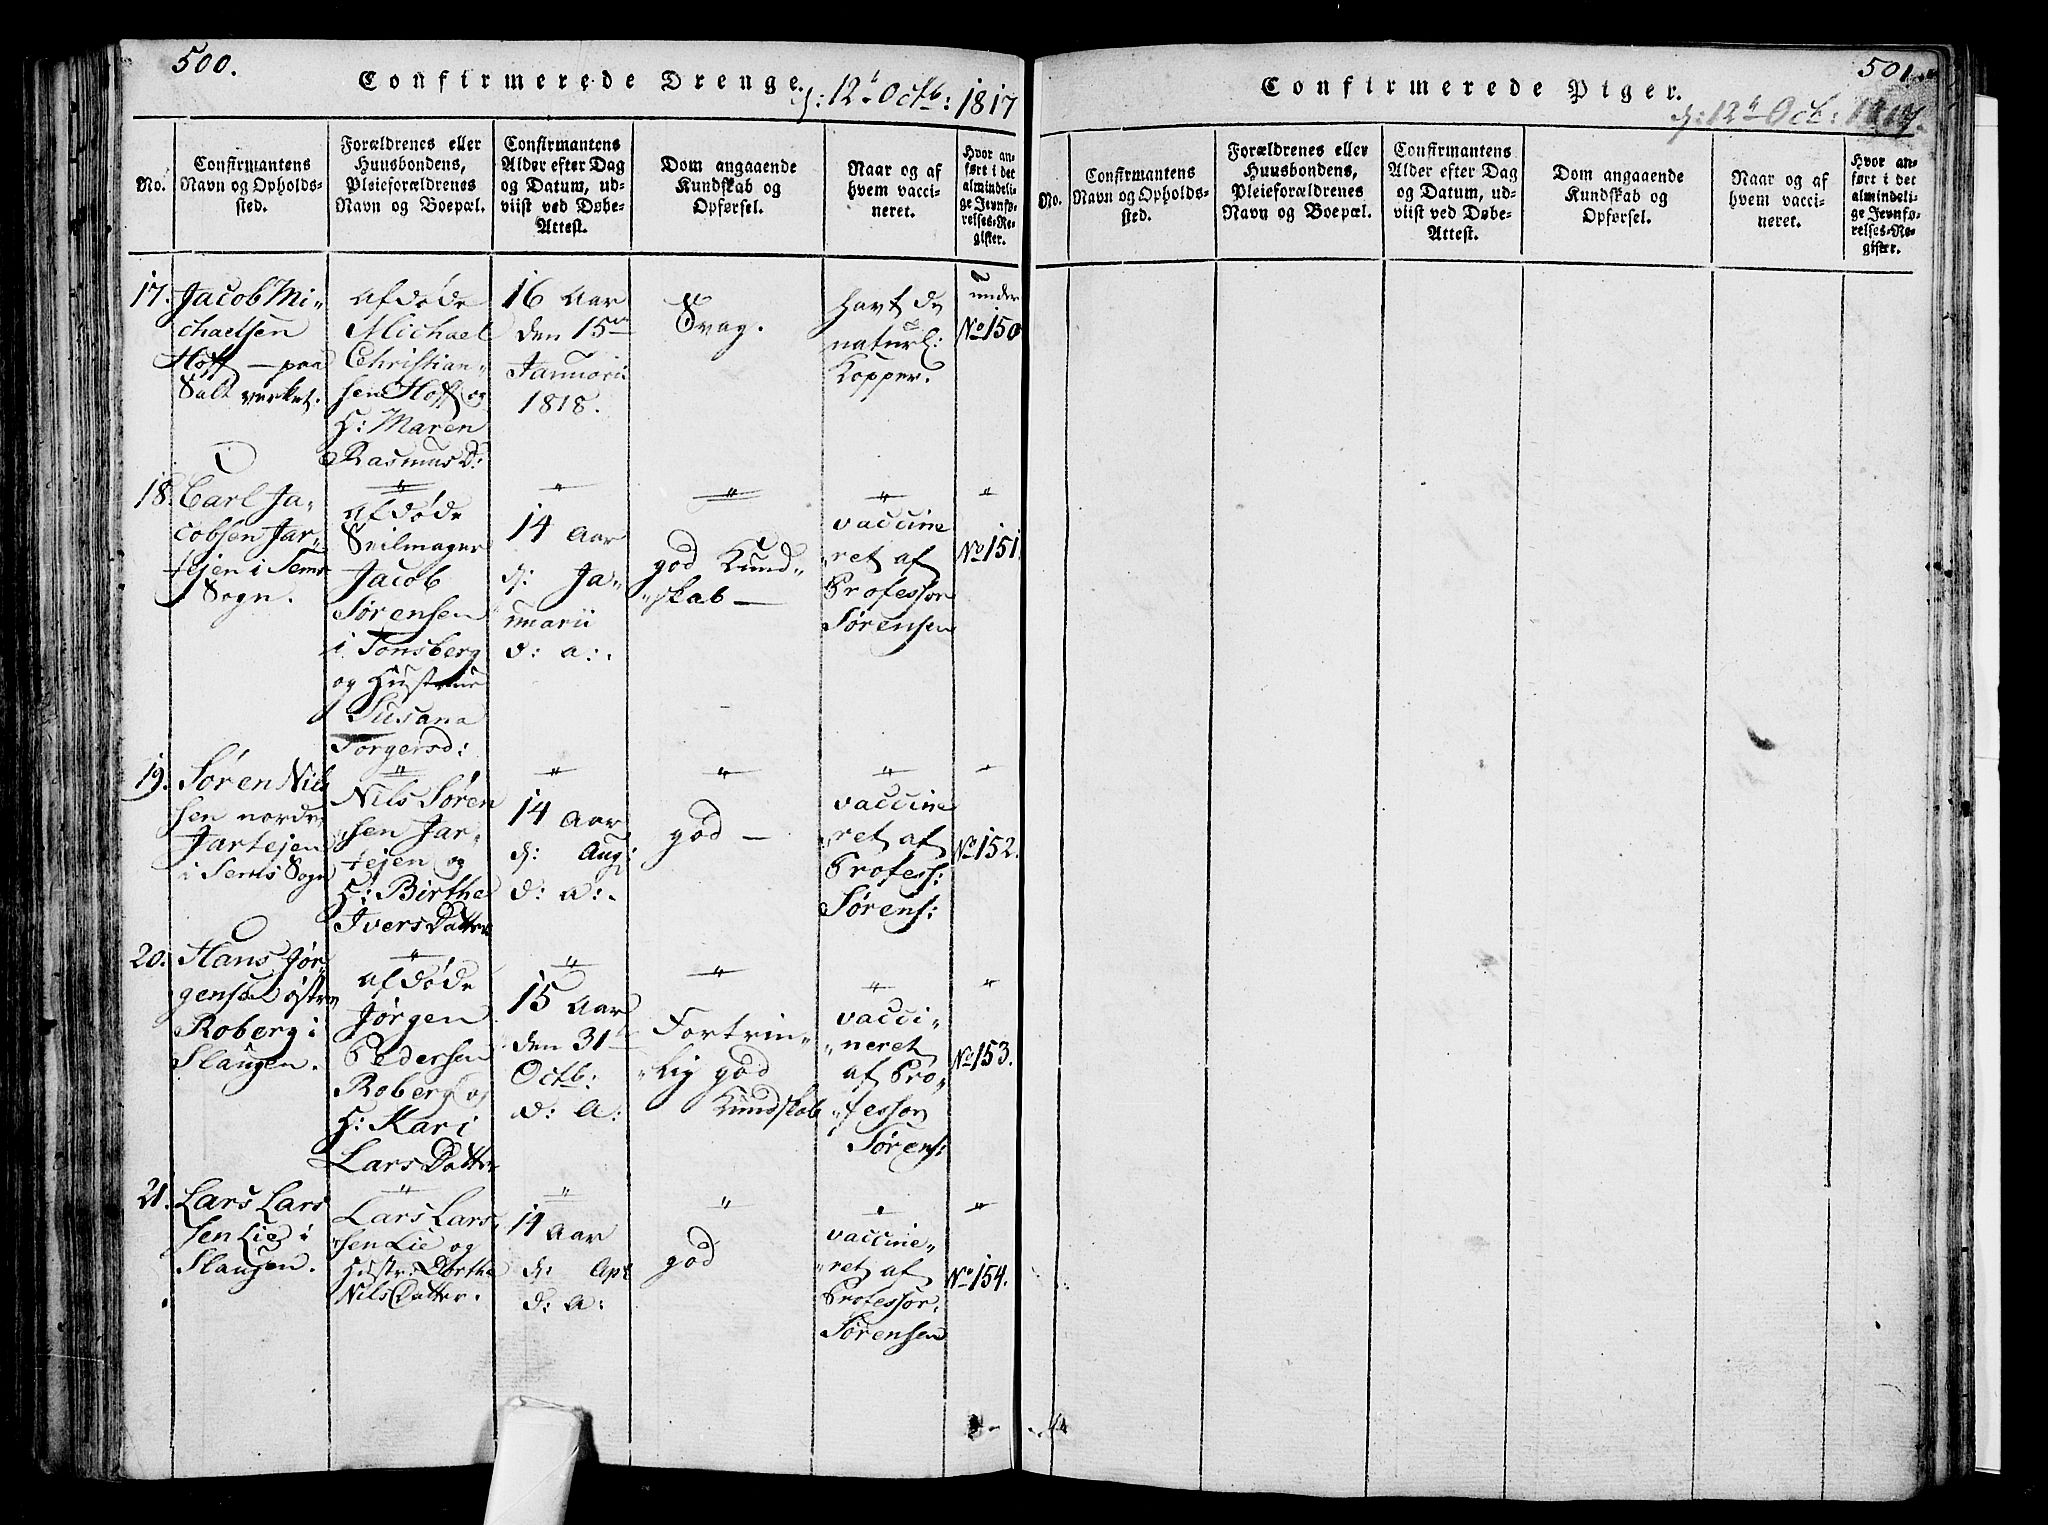 500.
Confirmerede Drenge. d: 12t Octb: 1817
No.
Confirmantens
Navn og Opholds-
sted.
Forældrenes eller
Huusbondens,
Pleieforældrenes
Navn og Boepæl.
Confirmantens
Alder efter Dag
og Datum, ud-
viist ved Døbe-
Attest.
Dom angaaende
Kundskab og
Opførsel.
Naar og af
hvem vacci-
neret.
Hvor an-
ført i det
almindeli-
ge Jevnfø-
relses-Re-
gister.
17.
Jacob Mi-
chaelsen
Hoff - paa
Saltverket.
afdøde
Michael
Christian-
sen Hoff og
H: Maren
Rasmus D:
16 Aar
den 15de
Januarii
1818.
Svag.
havt de
naturl:
Kopper.
under
No 150
18.
Carl Ja-
cobsen Jar-
tejen i Sems
Sogn.
"
afdøde
Seilmager
Jacob
Sørensen
i Tønsberg
og Hustrue
Susana
Torgersd:
"
14 Aar
d: Ja-
nuarii
d: a:.
"
god Kund-
"skab -
"
vaccine
"ret af
Professor
Sørensen
"
No 151.
19.
Søren Nils
sen nordre
Jartejen
i Sems Sogn
"
Nils Søren
sen Jar-
tejen og
H: Birthe
Ivers Datter
"
14 Aar
d: Aug:
d: a:.
"
god -
"
vaccine
"ret af
Profess:
Sørens:
"
No 152.
20.
Hans Jør-
gensen østre
Roberg i
Slaugen.
"
afdøde
Jørgen
Pedersen
Roberg og
H: Kari
Lars Datter
"
15 Aar
den 31te
Octb:
d: A:
"
Fortrin-
"lig god
Kundskab
"
vacci-
"neret
af Pro-
"fessor
Sørens:
"
No 153.
21.
Lars Lars
sen Lie i
Slaugen.
"
Lars Lars
sen Lie og
Hustr: Dorthe
Nils Datter.
"
14 Aar
d: Apr
d: A:
"
god
"
vaccine-
"ret af
Professor
Sørensen
"
No 154.
501.
Confirmerede Piger.
d: 12t Octb: 1817.
No.
Confirmantens
Navn og Opholds-
sted.
Forældrenes eller
Huusbondens,
Pleieforældrenes
Navn og Boepæl.
Confirmantens
Alder efter Dag
og Datum, ud-
viist ved Døbe-
Attest.
Dom angaaende
Kundskab og
Opførsel.
Naar og af
hvem vacci-
neret.
Hvor an-
ført i det
almindeli-
ge Jevnfø-
relses-Re-
gister.